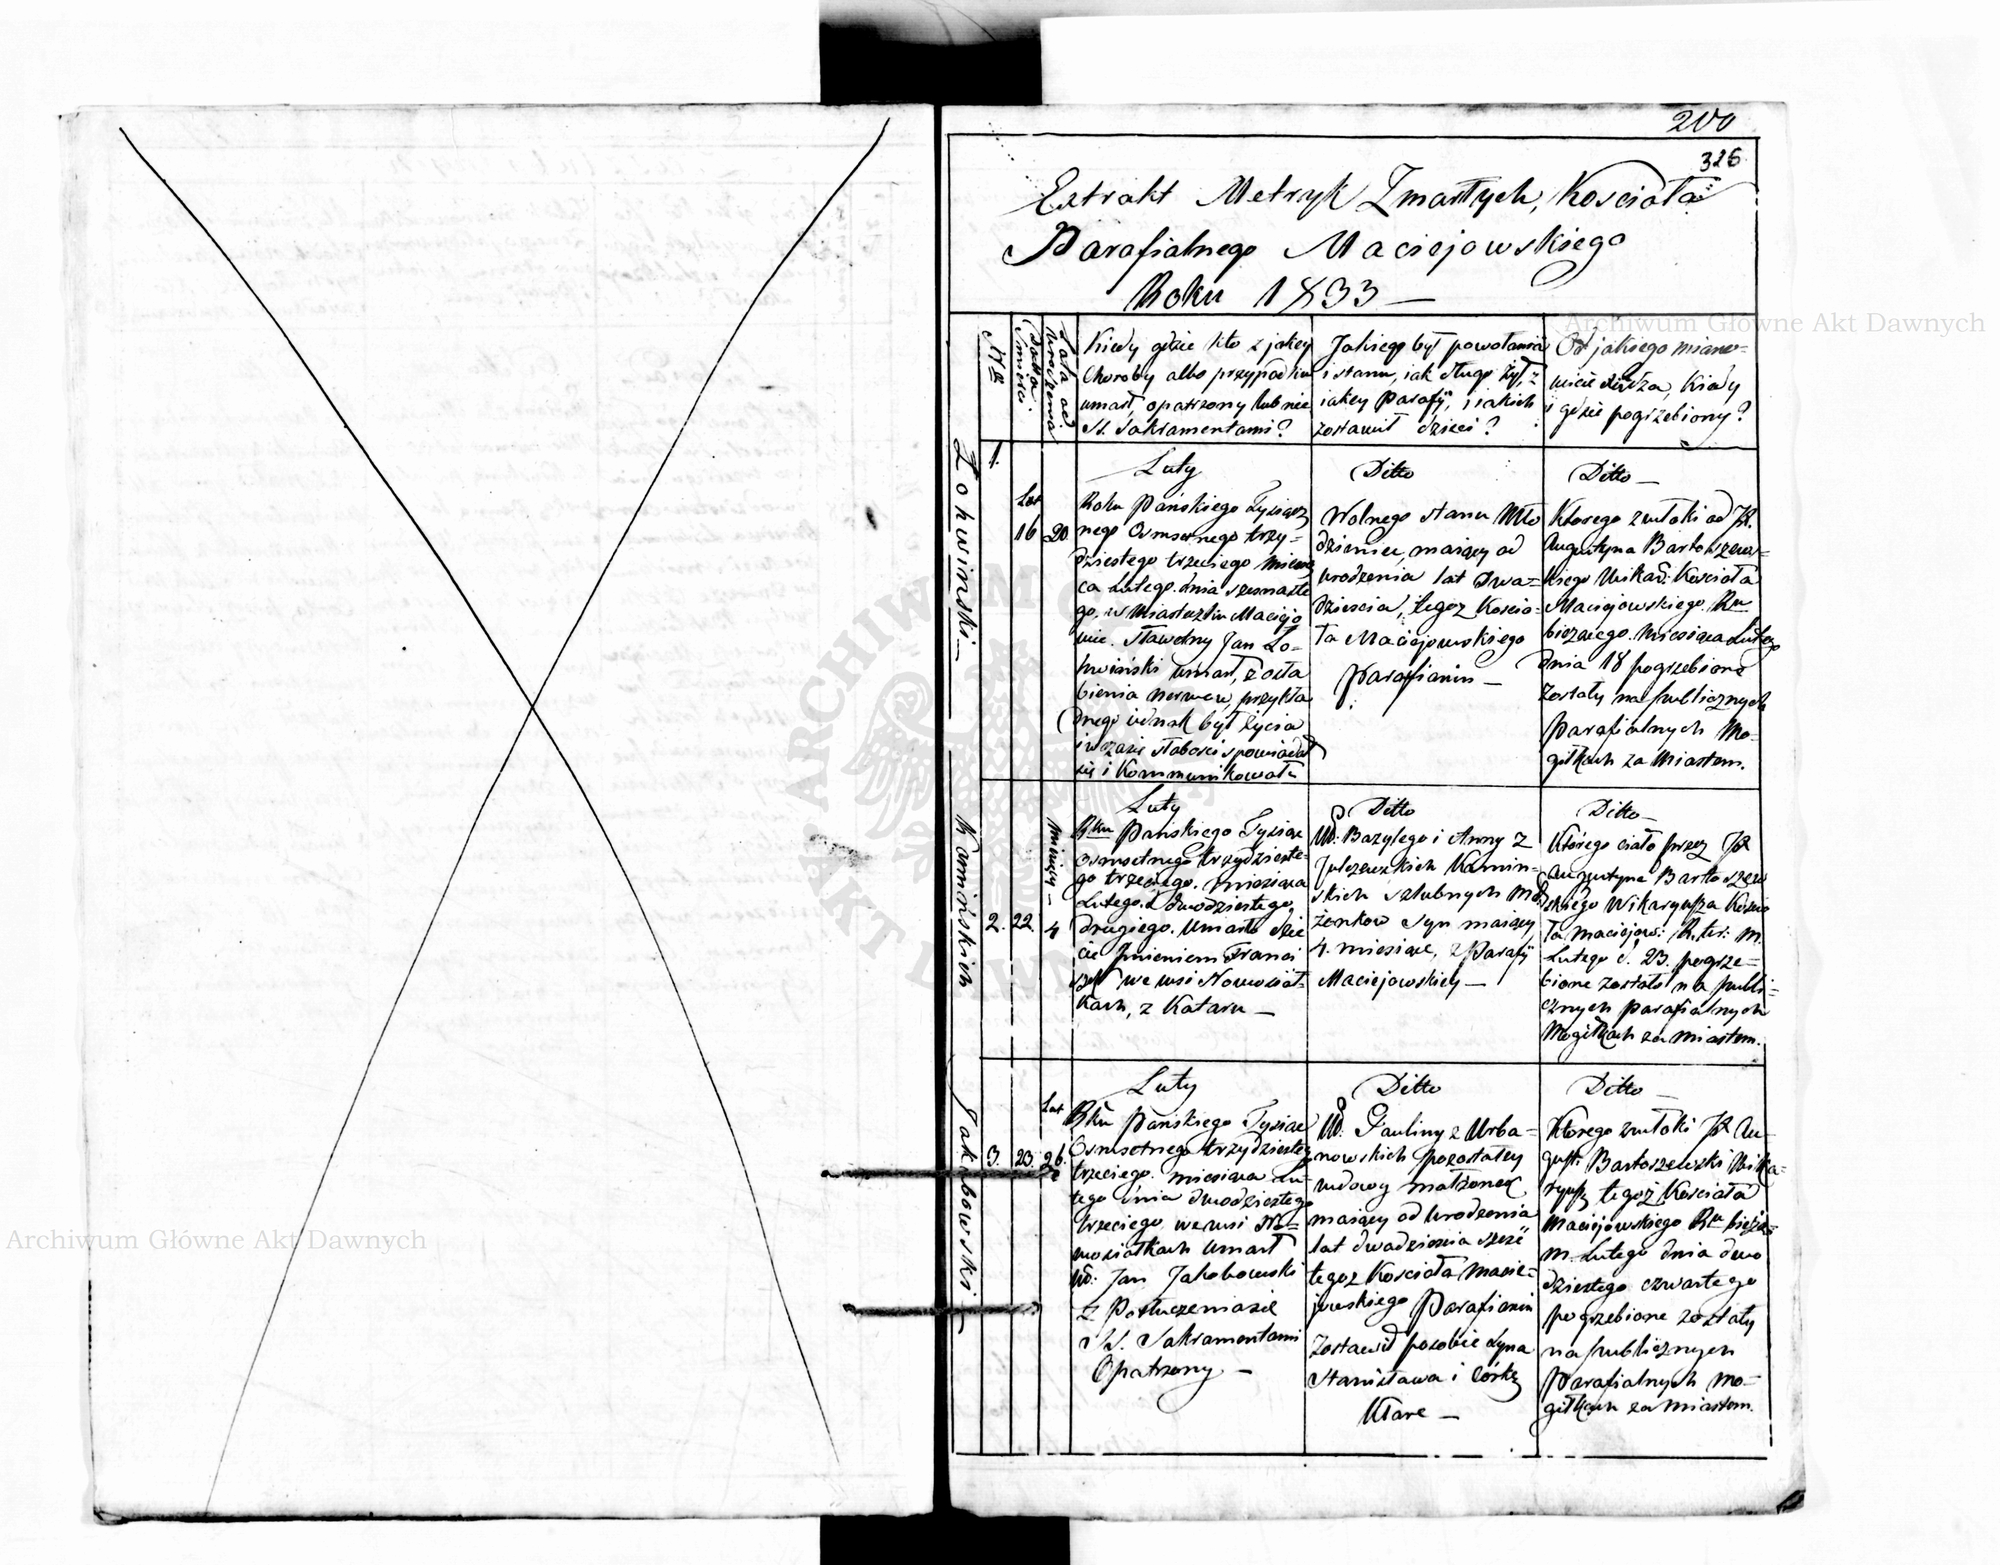 200
326
Extrakt Metryk Zmarłych, Kościoła
Parafialnego Maciejowskiego
Roku 1833 —
Nro
Data śmierci
Lata od urodzenia
Kiedy gdzie kto z jakey
Choroby albo przypadku
umarł, opatrzony lub nie
SS. Sakramentami?
Jakiego był powołania
i stanu, iak długo żył, z
iakey Parafij, i iakich
zostawił dzieci?
Od jakiego miano-
wicie Xiędza, Kiedy
i gdzie pogrzebiony?
Archiwum Główne Akt Dawnych
1.
Łohwinski —
Lat
16
20
Luty
Roku Pańskiego Tysiącz
nego Osmsetnego trzy-
dziestego trzeciego miesią
ca Lutego dnia szesnaste
go, w Miasteczku Maciejo
wie. Sławetny Jan Ło-
hwiński umarł, z osła
bienia nerwow, przykła
dnego iednak był życia
i w czasie słabości spowiadał
się i Kommunikował
Ditto
Wolnego stanu Mło
dzieniec, maiący od
urodzenia lat dwa-
dzieścia, tegoż Kościo-
ła Maciejowskiego
Parafianin —
Ditto —
Ktorego zwłoki od JX.
Augustyna Bartoszew-
skiego Wikar: Kościoła
Maciejowskiego Ru
bieżącego miesiąca Lutego
dnia 18 pogrzebione
zostały na publicznych
Parafialnych Mo-
giłkach za Miastem.
Kamińskich
2.
22.
miesięcy —
4
Luty
Rku Pańskiego Tysiąc
osmsetnego trzydzieste-
go trzeciego. miesiąca
Lutego d dwudziestego
drugiego. Umarło dzie
cie Imieniem Franci
szek we wsi Nowosioł-
kach, z Kataru —
Ditto
WW. Bazylego i Anny z
Julczewskich Kamiń-
skich szlubnych Mał
żonkow syn maiący
4. miesiące, z Parafij
Maciejowskiey —
Ditto —
Którego ciało przez JX
Augustyna Bartoszew
skiego Wikaryusza Kościo
ła Maciejow: R. br: M.
Lutego d. 23. pogrze-
bione zostało na publi-
cznych parafialnych
Mogiłkach za miastem.
Jakubowski —
3.
23.
Lat
26.
Luty
Rku Pańskiego Tysiąc
Osmsetnego trzydziestego
trzeciego. miesiąca Lu-
tego dnia dwudziestego
trzeciego, we wsi No-
wosiołkach umarł
W. Jan Jakubowski
z
SS. Sakramentami
Opatrzony —
Ditto
W. Pauliny z Urba-
nowskich pozostałey
wdowy małżonek
maiący od urodzenia
lat dwadzieścia sześć
tegoż Kościoła Macie-
jowskiego Parafianin
Zostawił po sobie syna
Stanisława i córkę
Klarę —
Ditto —
Ktorego zwłoki JX Au-
gust: Bartoszewski Wika-
ryusz tegoż Kościoła
Maciejowskiego Ru bieżą:
m. Lutego dnia dwu
dziestego czwartego
pogrzebione zostały
na publicznych
Parafialnych Mo-
giłkach za miastem.
Archiwum Główne Akt Dawnych
ARCHIWUM
AKT DAWNYCH